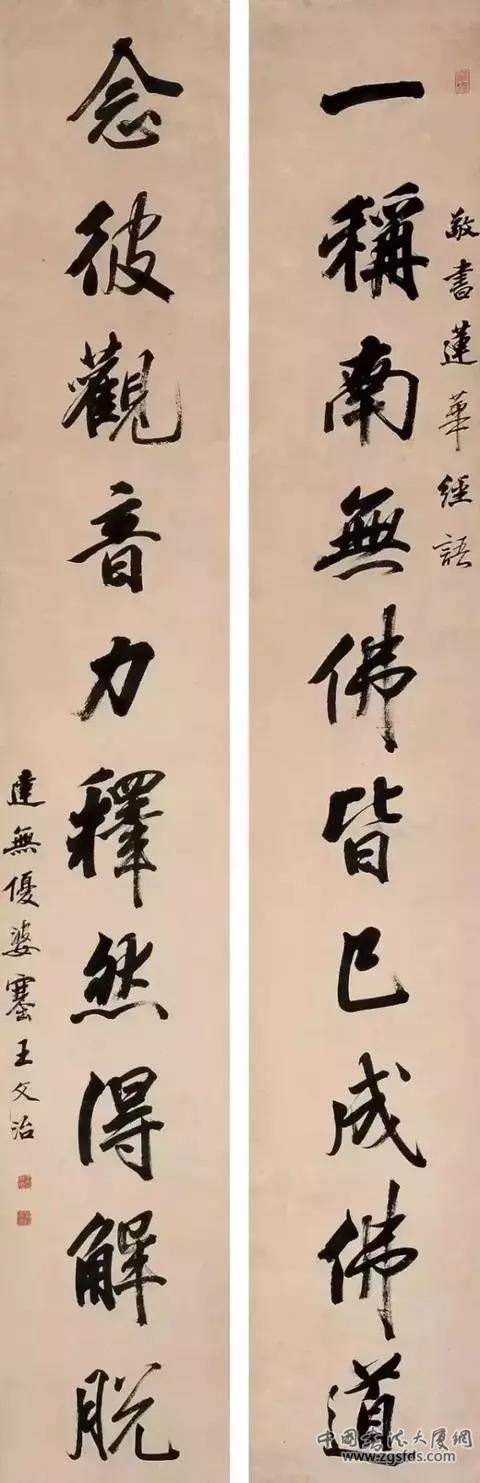 敬書蓮華經語
一稱南無佛皆已成佛道
念彼觀音力釋然得解脫
達無優婆塞王文治
中國書法大厦網
www.zgsfds.com